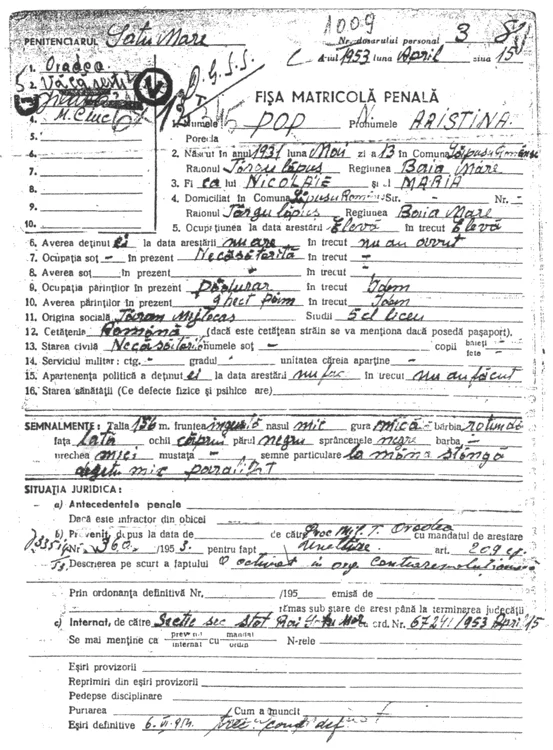 1009
PENITENCIARUL Satu Mare
Nr. dosarului personal 3
Anul 1953 luna April ziua 15
1. Oradea
2. Văcărești
3.
4. M. Ciuc
5.
6.
7.
8.
9.
10.
D.G.S.S.
FIȘA MATRICOLĂ PENALĂ
1. Numele POP Prenumele ARISTINA
Porecla
2. Născut în anul 1931 luna Mai zi a 13 în Comuna
Raionul Târgu lăpuș Regiunea Baia Mare
3. Fi ca lui NICOLAIE și al MARIA
4. Domiciliat în Comuna Lăpusu Român Sur. - Nr. -
Raionul Târgu lăpuș Regiunea Baia Mare
5. Ocupațiunea la data arestării Elevă în trecut Elevă
6. Averea deținut ei la data arestării nu are în trecut nu au avut
7. Ocupația soț - în prezent Necăsătorită în trecut -
8. Averea soț în prezent - în trecut -
9. Ocupația părinților în prezent Pădurar în trecut Idem
10. Averea părinților în prezent 9 hect păm în trecut Idem
11. Origina socială Țăran Mijlocaș Studii 5 cl liceu
12. Cetățenie Română (dacă este cetățean străin se va menționa dacă posedă pașaport).
13. Starea civilă Necăsătorită numele soț - copii băieți - fete -
14. Serviciul militar: ctg. - gradul - unitatea căreia aparține -
15. Apartenența politică a deținut ei la data arestării nu fac în trecut nu au făcut
16. Starea sănătății (Ce defecte fizice și psihice are)
SEMNALMENTE: Talia 156 m. fruntea îngustă nasul mic gura mică bărbia rotundă
fața lată ochii căprui părul negru sprâncenele negre barba -
urechea mici mustața - semne particulare la mâna stângă
degetu mic paralizat
SITUAȚIA JURIDICĂ:
a) Antecedentele penale
Dacă este infractor din obicei
b) Prevenit, depus la data de de către Proc Mil. T. Oradea cu mandatul de arestare
Nr. 360 /195 3. pentru fapt Uneltire art. 209 cp.
Descrierea pe scurt a faptului A activat in org. contrarevoluționară
Prin ordonanța definitivă Nr. /195 emisă de
rămas sub stare de arest până la terminarea judecății
c) Internat, de către Secție sec stat cu ord. Nr. 67241/1953 April 15
Se mai menține ca prevenit internat cu mandat ordin N-rele
Eșiri provizorii
Reprimiri din eșiri provizorii
Pedepse disciplinare
Purtarea Cum a muncit
Eșiri definitive 6.VI.954.